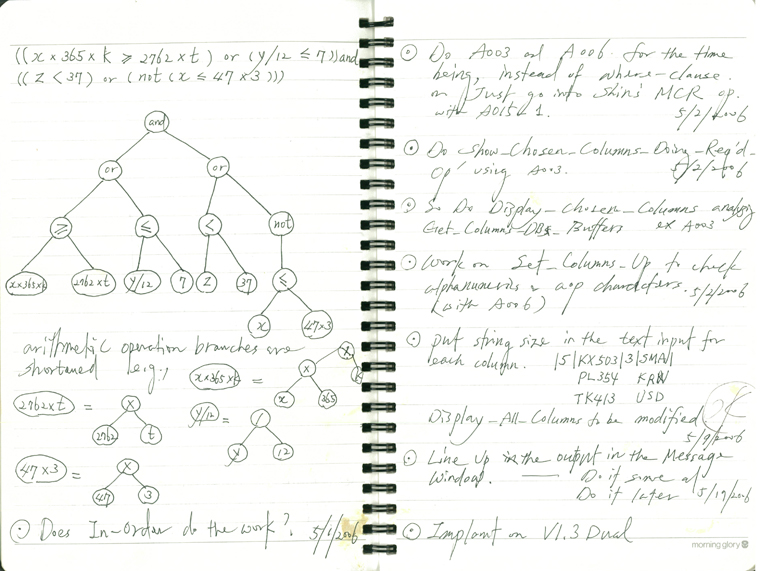 ((x × 365 × k ≥ 2762 × t) or (y/12 ≤ 7)) and
((z < 37) or (not (x ≤ 47 × 3)))
and
or or
≥ ≤ < not
x×365×k 2762×t y/12 7 z 37 ≤
x 47×3
arithmetic operation branches are
shortened e.g.,
x×365×k = × × k x 365
2762×t = × 2762 t
y/12 = / y 12
47×3 = × 47 3
Does In-order do the work? 5/1/2006
Do A003 and A006 for the time
being, instead of where-clause.
Just go into Shin's MCR op.
with A015
5/2/2006
Do Show_Chosen_Columns_Doing_Req'd_
Op' using A003. 5/2/2006
So Do Display_Chosen_Columns
Get_Columns_DBs_Buffers ex A003
Work on Set_Columns_Up to check
alphanumerics & characters. 5/2/2006
(with A006)
Put string size in the text input for
each column. |5|KX503|3|SMA|
PL354 KRW
TK413 USD
Display_All_Columns to be modified OK
5/9/2006
Line Up in the output in the Message
Window. Do it
Do it later 5/19/2006
Implant on V1.3 Dual
morning glory